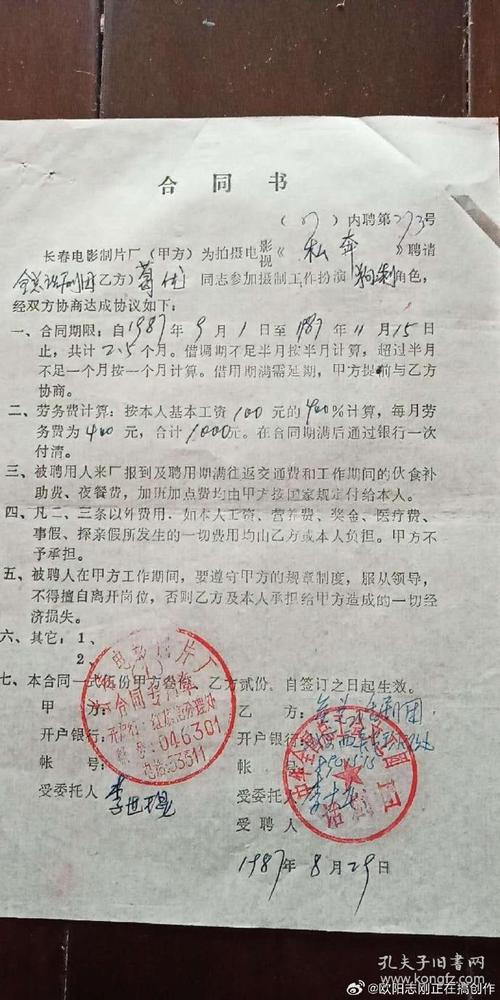 合同书
(87)内聘第273号
长春电影制片厂(甲方)为拍摄电影视《私奔》聘请
全总话剧团(乙方)葛优同志参加摄制工作扮演狗剩角色,
经双方协商达成协议如下:
一、合同期限:自1987年9月1日至1987年11月15日
止,共计2.5个月。借调期不足半月按半月计算,超过半月
不足一个月按一个月计算。借用期满需延期,甲方提前与乙方
协商。
二、劳务费计算:按本人基本工资100元的400%计算,每月劳
务费为400元,合计1000元。在合同期满后通过银行一次
付清。
三、被聘用人来厂报到及聘用期满往返交通费和工作期间的伙食补
助费、夜餐费,加班加点费均由甲方按国家规定付给本人。
四、凡二、三条以外费用,如本人工资、营养费、奖金、医疗费、
事假、探亲假所发生的一切费用均由乙方或本人负担。甲方不
予承担。
五、被聘人在甲方工作期间,要遵守甲方的规章制度,服从领导,
不得擅自离开岗位,否则乙方及本人承担给甲方造成的一切经
济损失。
六、其它:1、
2、
七、本合同一式 份甲方叁份 乙方贰份,自签订之日起生效。
甲方: 乙方:全总话剧团
开户银行: 开户银行:
帐号: 帐号:
受委托人 李世 受委托人 李
受聘人
1987年8月29日
电影制片厂
合同专用章
046301
电话:53311
话剧团
孔夫子旧书网
@欧阳志刚正在搞创作